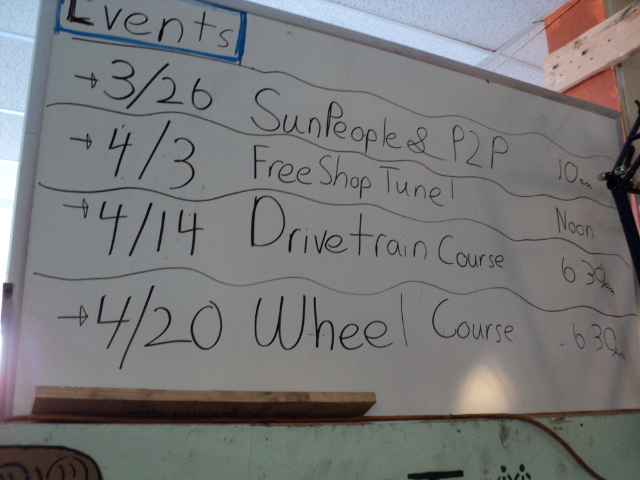 Events
→3/26 SunPeople & P2P 10am
→4/3 Free Shop Tune! Noon
→4/14 Drivetrain Course 6:30pm
→4/20 Wheel Course 6:30pm